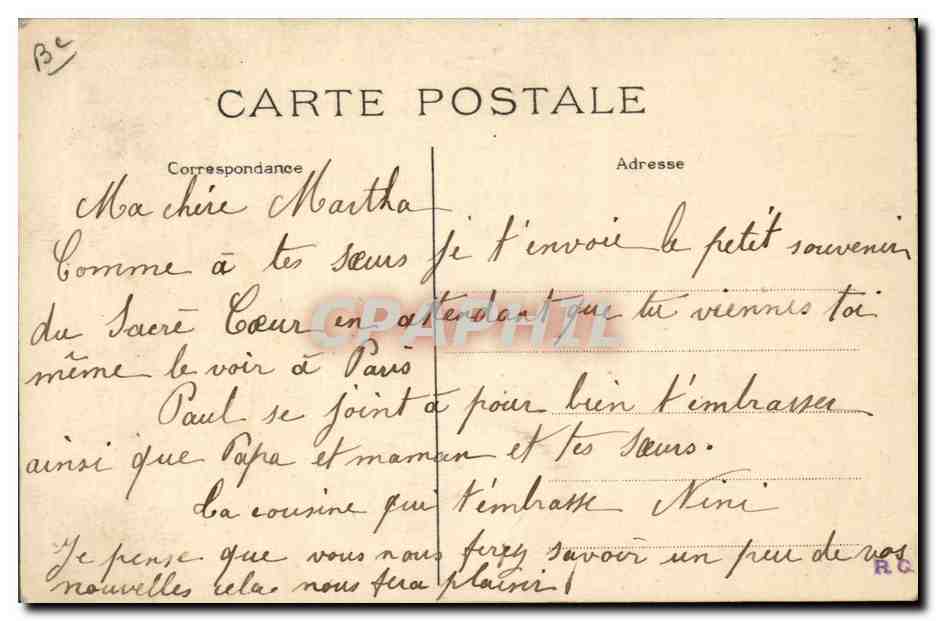 Bc
CARTE POSTALE
Correspondance
Adresse
Ma chère Martha
Comme à tes sœurs je t'envoie le petit souvenir
du Sacré Cœur en attendant que tu viennes toi
même le voir à Paris
Paul se joint à pour bien t'embrasser
ainsi que Papa et maman et tes sœurs.
Ta cousine qui t'embrasse Nini
Je pense que vous nous ferez savoir un peu de vos
nouvelles cela nous fera plaisir
CPAPHIL
R.C.